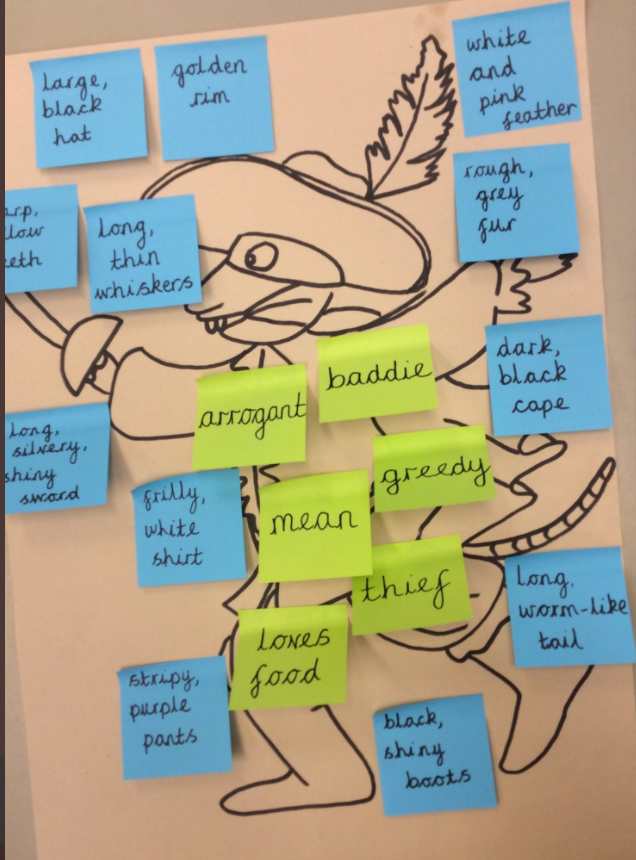 large,
black
hat
golden
rim
white
and
pink
feather
rough,
grey
fur
long,
thin
whiskers
dark,
black
cape
baddie
arrogant
long,
silvery,
shiny
sword
frilly,
white
shirt
greedy
mean
thief
long,
worm-like
tail
loves
food
stripy,
purple
pants
black,
shiny
boots